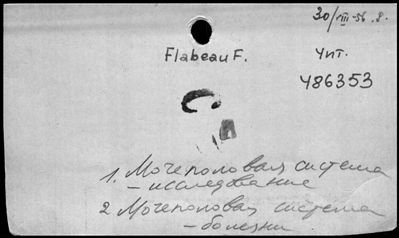 30/VIII-56 г.
Flabeau F.
Чит.
486353
1. Мочеполовая система
– исследование
2 Мочеполовая система
– болезни